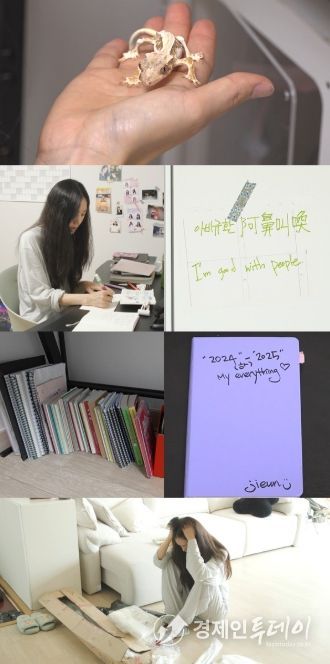 아비규환 阿鼻叫喚
I'm good with people.
"2024" "2025"
My everything♡
jieun
경제인투데이